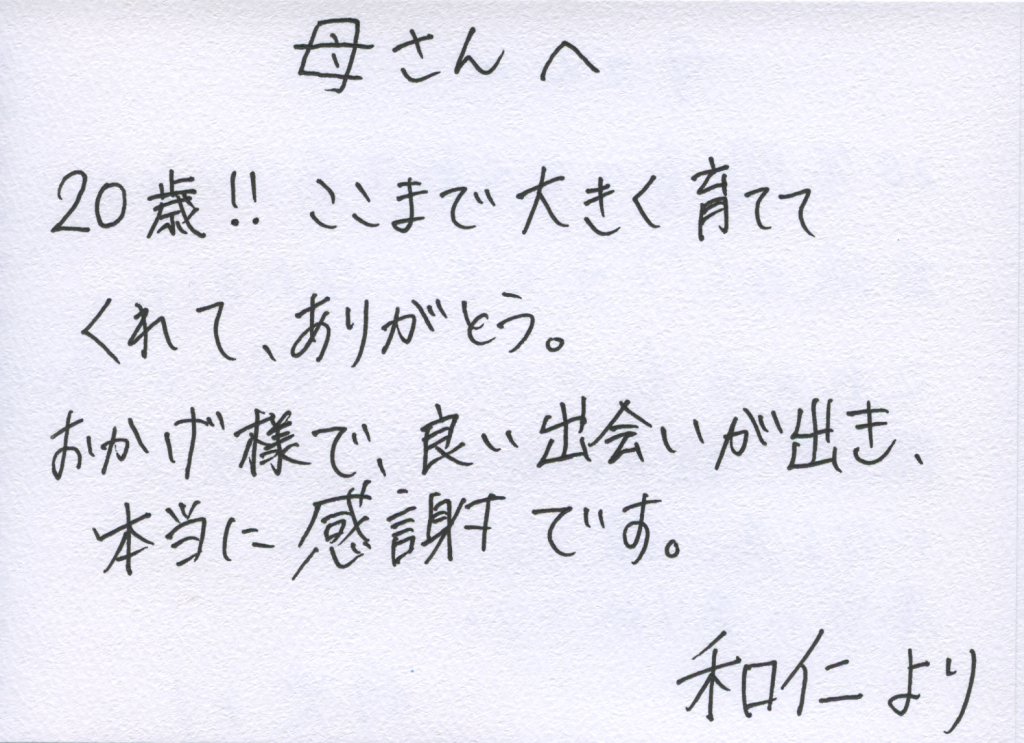 母さんへ
20歳!! ここまで大きく育てて
くれて、ありがとう。
おかげ様で、良い出会いが出き、
本当に感謝です。
和仁より